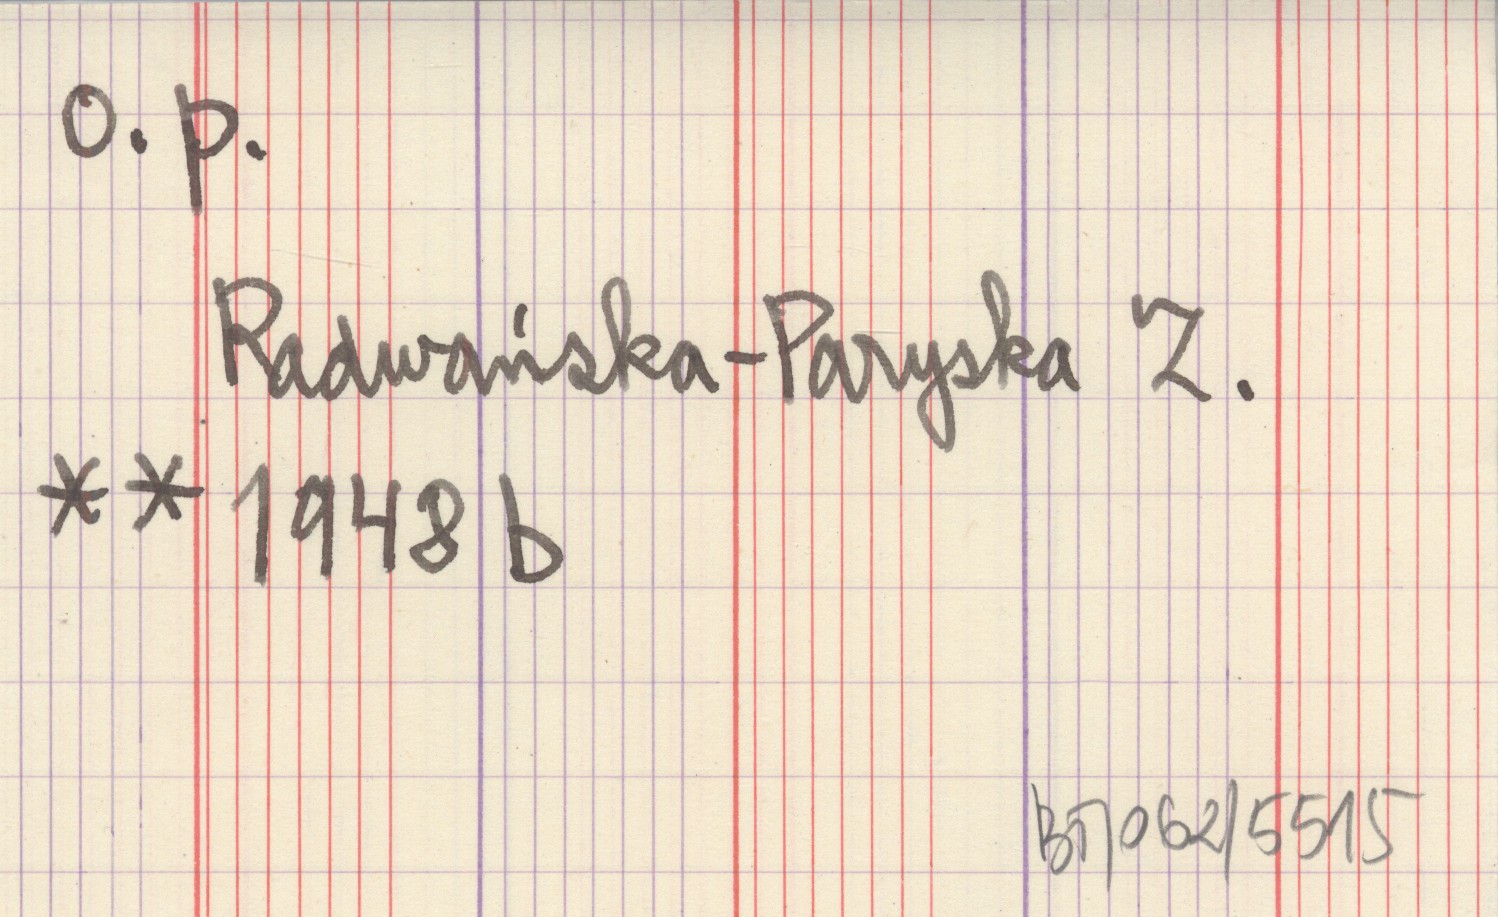 o. p.
Radwańska-Paryska Z.
** 1948 b
BT/062/5515